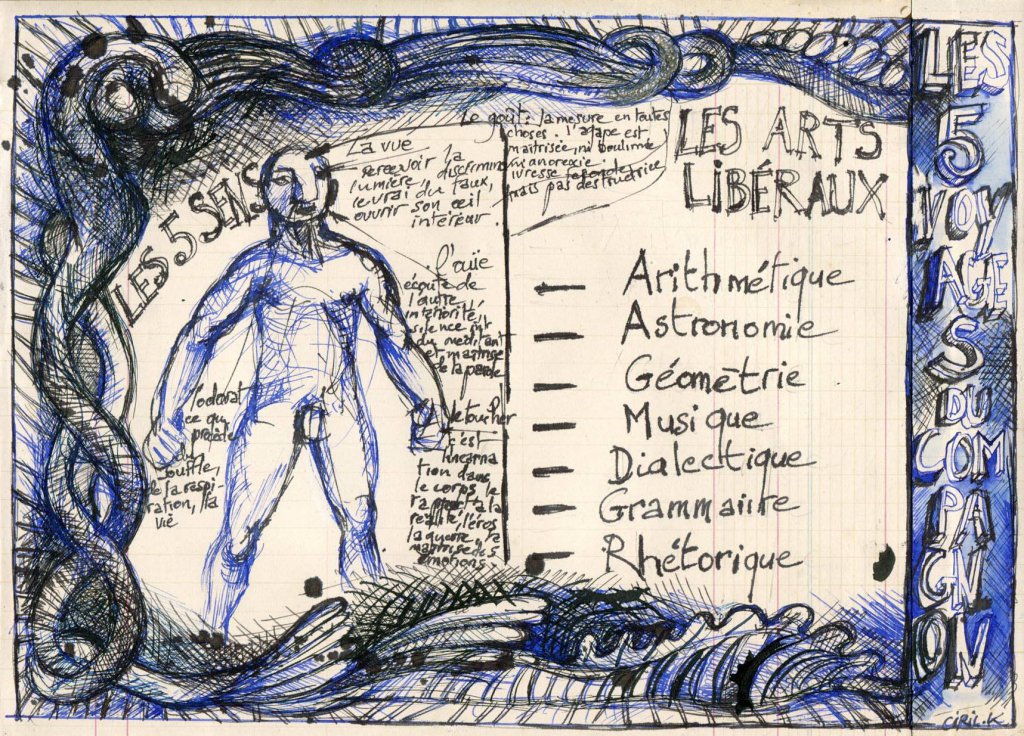 LES 5 SENS
La vue
percevoir la
lumière, discriminer
le vrai du faux,
ouvrir son œil
intérieur.
Le goût: la mesure en toutes
choses. l'agape est
maîtrisée, ni boulimie
ni anorexie.
ivresse féconde
mais pas destructrice
l'ouïe
écoute de
l'autre
intériorité,
silence
du méditant
et maîtrise
de la parole
l'odorat
ce qui
procède
du
souffle,
de la raspi-
ration, la
vie
le toucher
c'est
l'incarna
tion dans
le corps, le
rapport à la
réalité, l'éros
la guerre, la
maîtrise des
émotions.
LES ARTS
LIBÉRAUX
— Arithmétique
— Astronomie
— Géométrie
— Musique
— Dialectique
— Grammaire
— Rhétorique
LES
5
VOY
AGE
S
DU
COM
PA
GN
ON
CIRIL.K